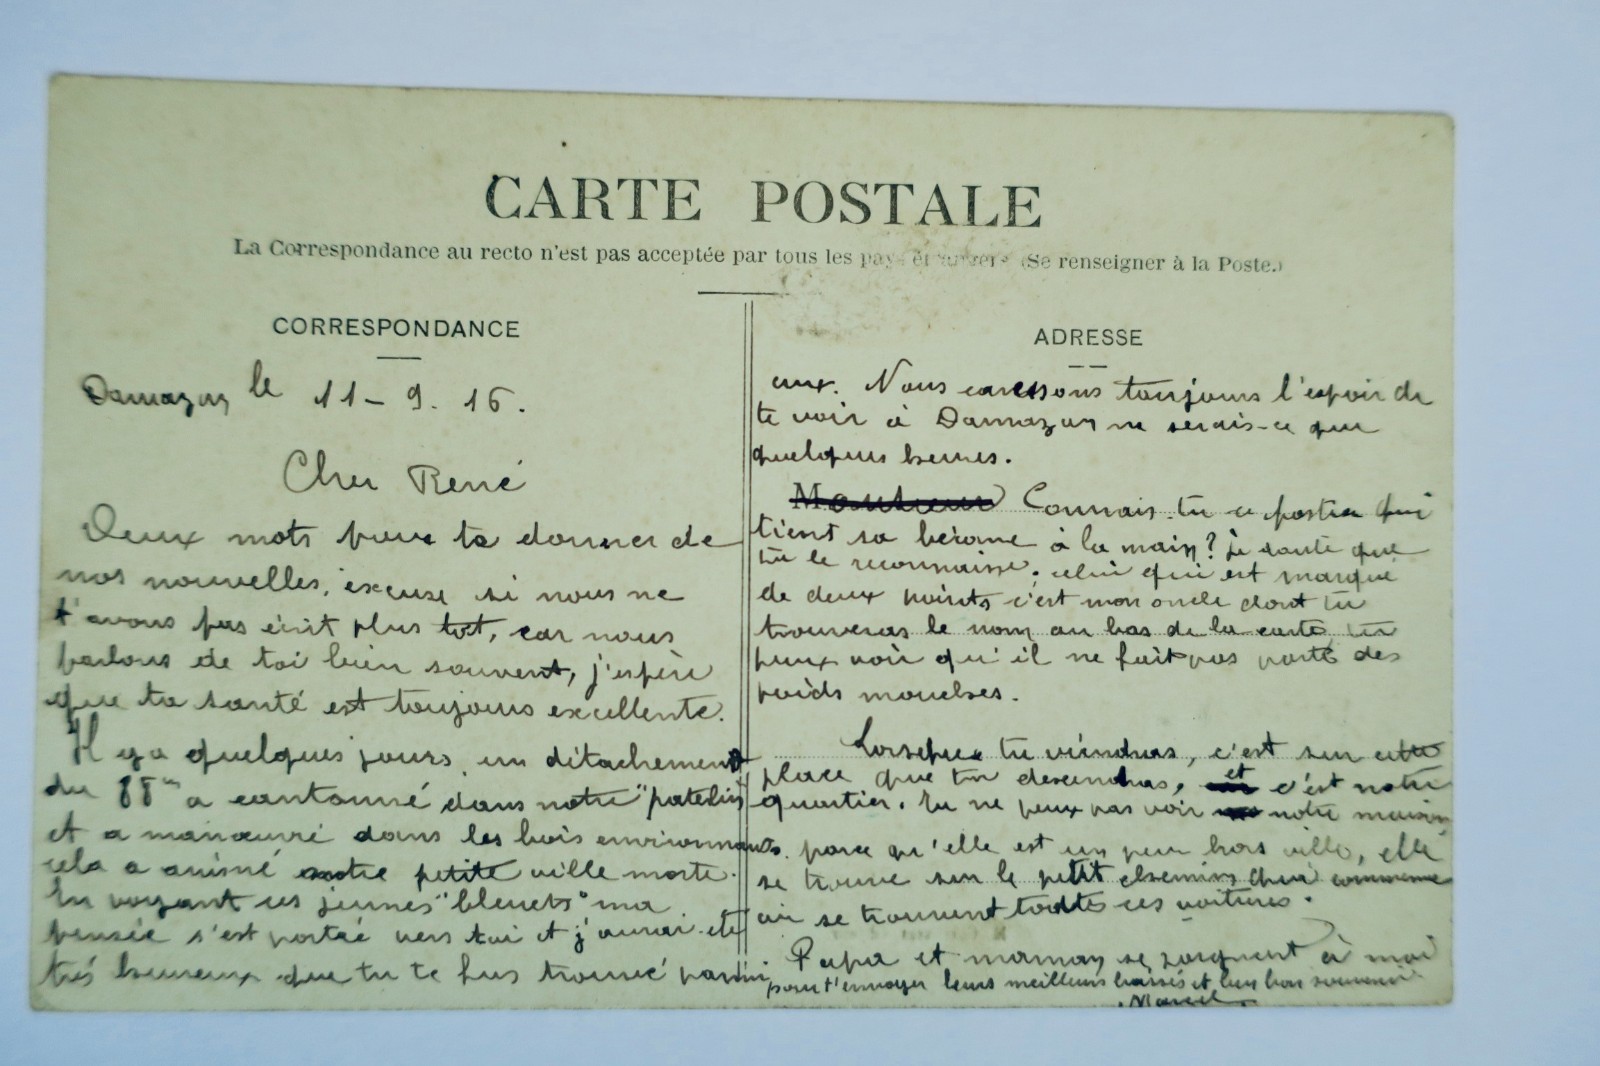 CARTE POSTALE
La Correspondance au recto n'est pas acceptée par tous les pays étrangers (Se renseigner à la Poste.)
CORRESPONDANCE
Damazan le 11-9.16.
Cher René
Deux mots pour te donner de
nos nouvelles, excuse si nous ne
t'avons pas écrit plus tôt, car nous
parlons de toi bien souvent, j'espère
que ta santé est toujours excellente.
Il y a quelques jours, un détachement
du 88me a cantonné dans notre "patelin"
et a manœuvré dans les bois environnants.
cela a animé notre petite ville morte.
En voyant ces jeunes "bleuets" ma
pensée s'est portée vers toi et j'aurai été
très heureux que tu te fus trouvé parmi
ADRESSE
eux. Nous caressons toujours l'espoir de
te voir à Damazan ne serais-ce que
quelques heures.
Monsieur Connais-tu ce postier qui
tient sa bécane à la main? je doute que
tu le reconnaisse, celui qui est marqué
de deux points c'est mon oncle dont tu
trouveras le nom au bas de la carte, tu
peux voir qu'il ne fait pas parti des
poids mouches.
Lorseque tu viendras, c'est sur cette
place que tu descendras, et c'est notre
quartier. Tu ne peux pas voir notre maison
parce qu'elle est un peu hors ville, elle
se trouve sur le petit chemin qui commence
où se trouvent toutes ces voitures.
Papa et maman se joignent à moi
pour t'envoyer leurs meilleurs baisers et leur bon souvenir
Marcel